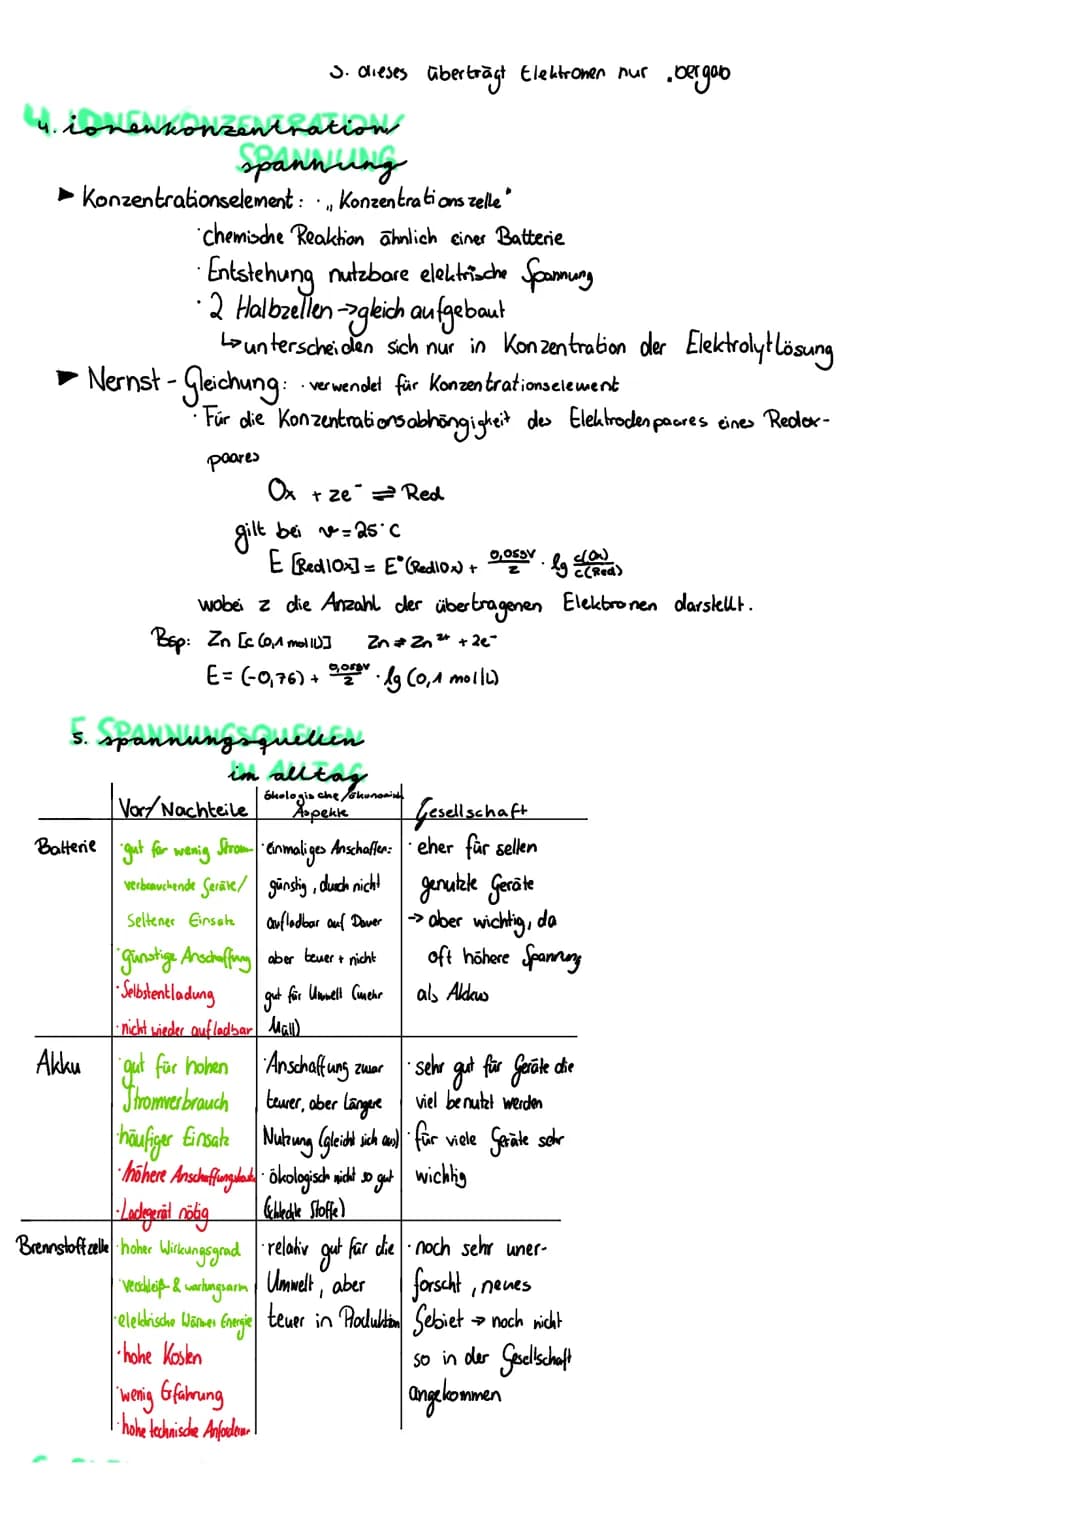 5. dieses überträgt Elektronen nur „bergab
4. IONENKONZENTRATION/
SPANNUNG
▶ Konzentrationselement: · „Konzentrationszelle"
· chemische Reaktion ähnlich einer Batterie
· Entstehung nutzbare elektrische Spannung
· 2 Halbzellen → gleich aufgebaut
↳ unterscheiden sich nur in Konzentration der Elektrolytlösung
▶ Nernst-Gleichung: · verwendet für Konzentrationselement
· Für die Konzentrationsabhängigkeit des Elektrodenpaares eines Redox-
paares
Ox + ze⁻ ⇌ Red
gilt bei v = 25°C
E [Red|Ox] = E°(Red|Ox) + 0,059V/z · lg c(Ox)/c(Red)
wobei z die Anzahl der übertragenen Elektronen darstellt.
Bsp: Zn [c (0,1 mol|L)] Zn ⇌ Zn²⁺ + 2e⁻
E = (-0,76) + 0,059V/2 · lg (0,1 mol|L)
5. SPANNUNGSQUELLEN
IM ALLTAG
Vor/Nachteile ökologische/ökonomisch Aspekte Gesellschaft
Batterie · gut für wenig Strom- · einmaliges Anschaffen: · eher für selten
verbrauchende Geräte/ günstig, durch nicht genutzte Geräte
Seltener Einsatz aufladbar auf Dauer → aber wichtig, da
· günstige Anschaffung aber teuer + nicht oft höhere Spannung
· Selbstentladung gut für Umwelt (mehr als Akkus
· nicht wieder aufladbar Müll)
Akku · gut für hohen · Anschaffung zwar · sehr gut für Geräte die
Stromverbrauch teurer, aber längere viel benutzt werden
· häufiger Einsatz Nutzung (gleicht sich aus) · für viele Geräte sehr
· höhere Anschaffungskosten · ökologisch nicht so gut wichtig
· Ladegerät nötig (schlechte Stoffe)
Brennstoffzelle · hoher Wirkungsgrad · relativ gut für die · noch sehr uner-
· verschleiß- & wartungsarm Umwelt, aber forscht, neues
· elektrische Wärme Energie teuer in Produktion Gebiet → noch nicht
· hohe Kosten so in der Gesellschaft
· wenig Erfahrung angekommen
· hohe technische